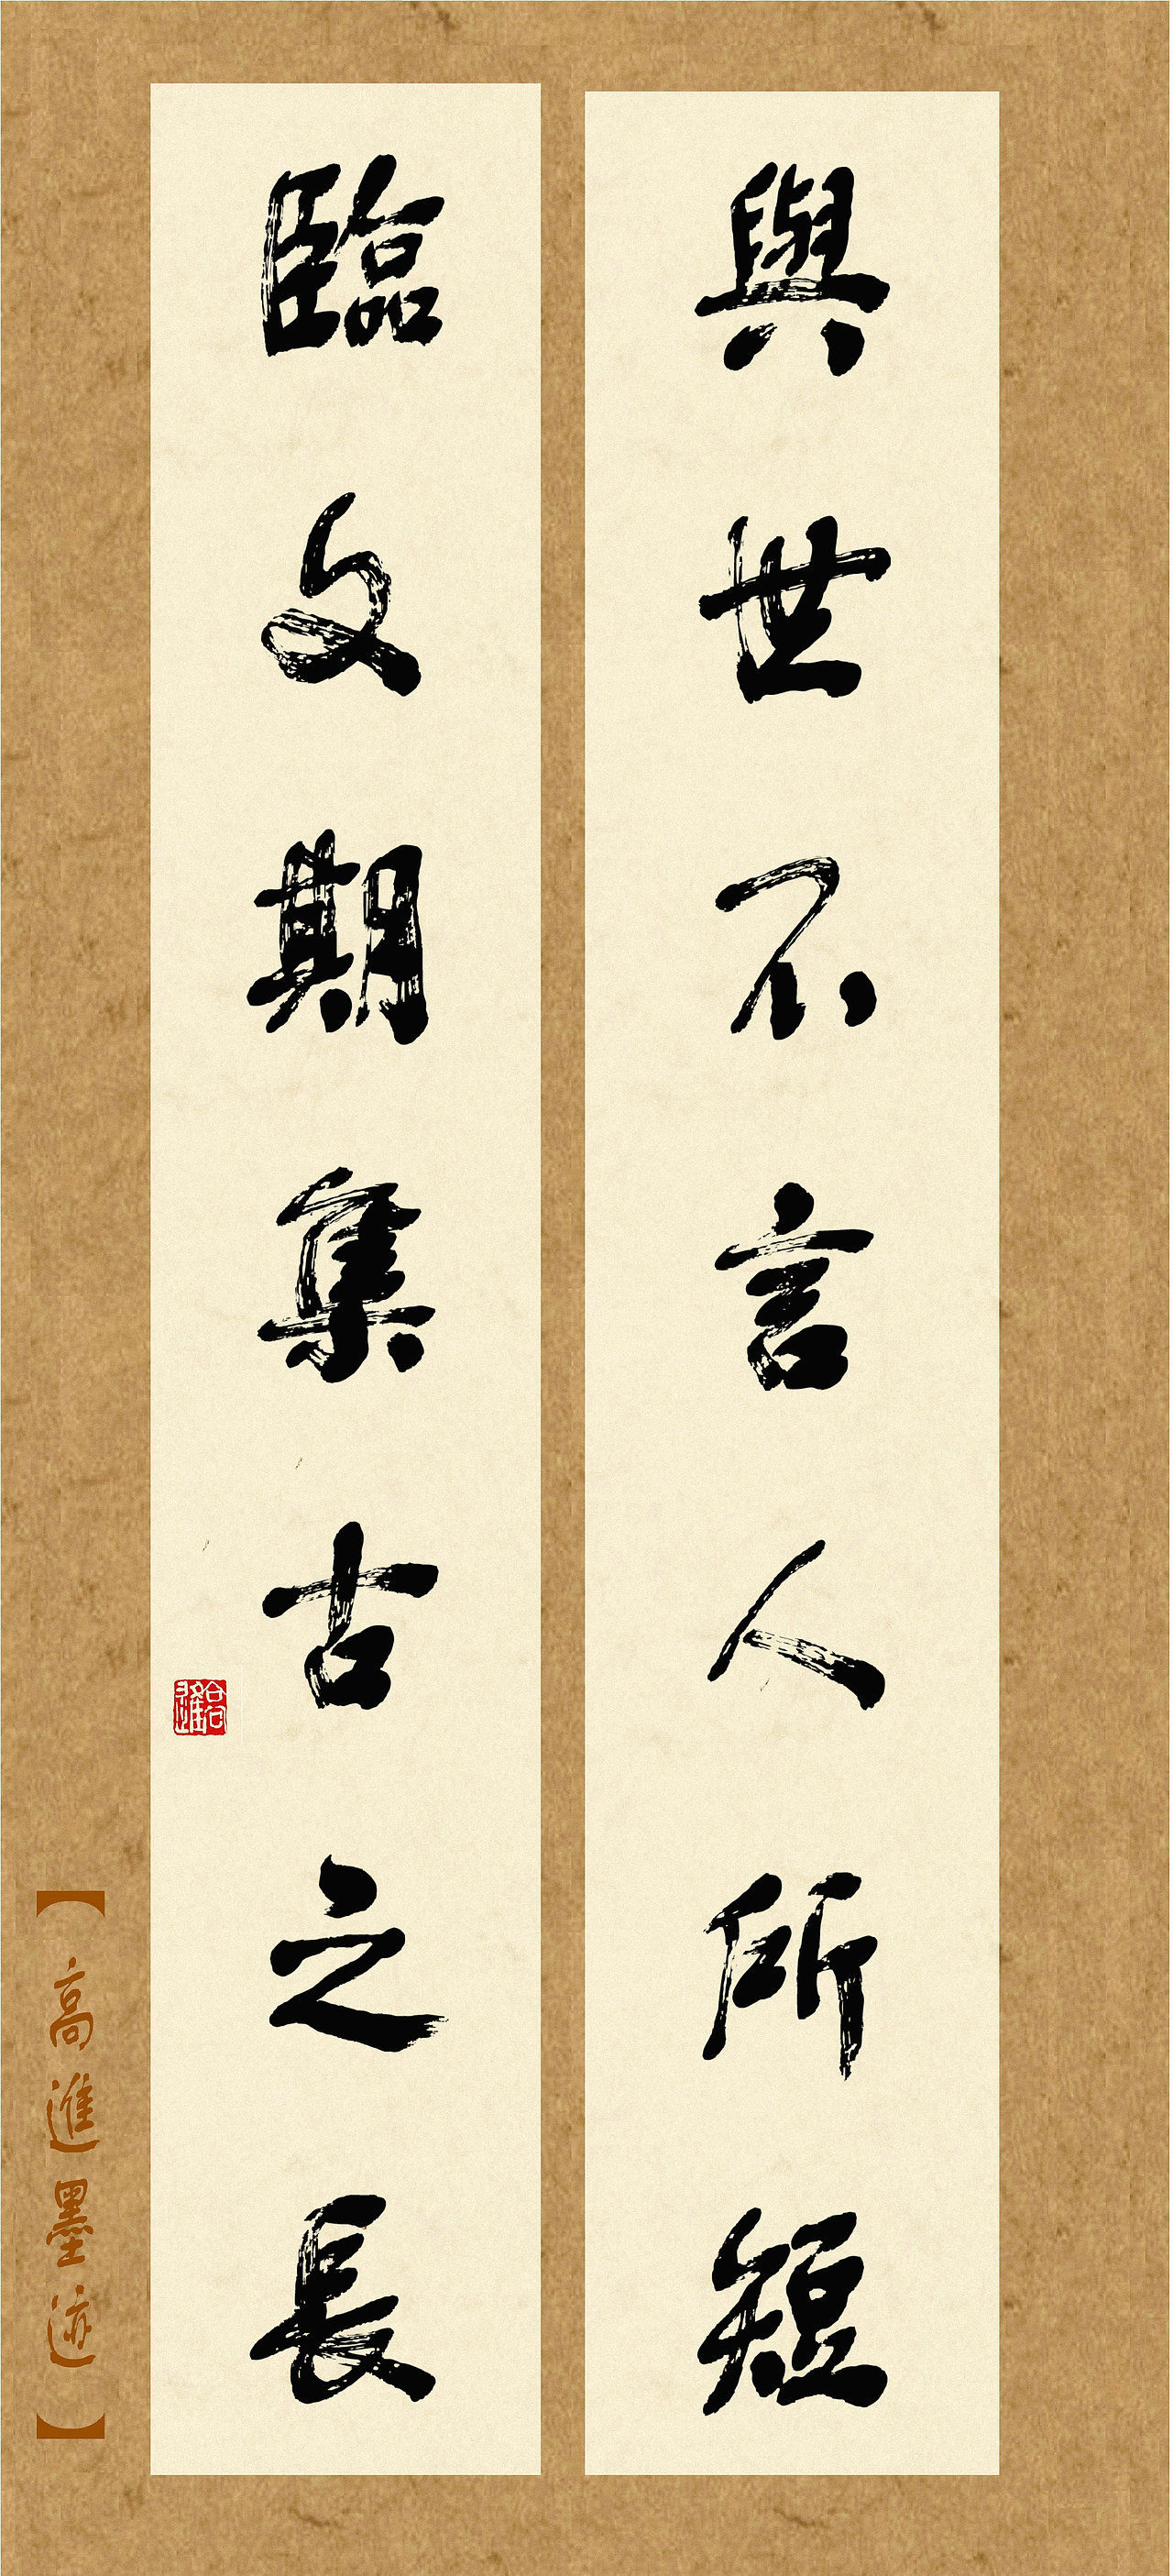 與世不言人所短
臨文期集古之長
【高進墨迹】